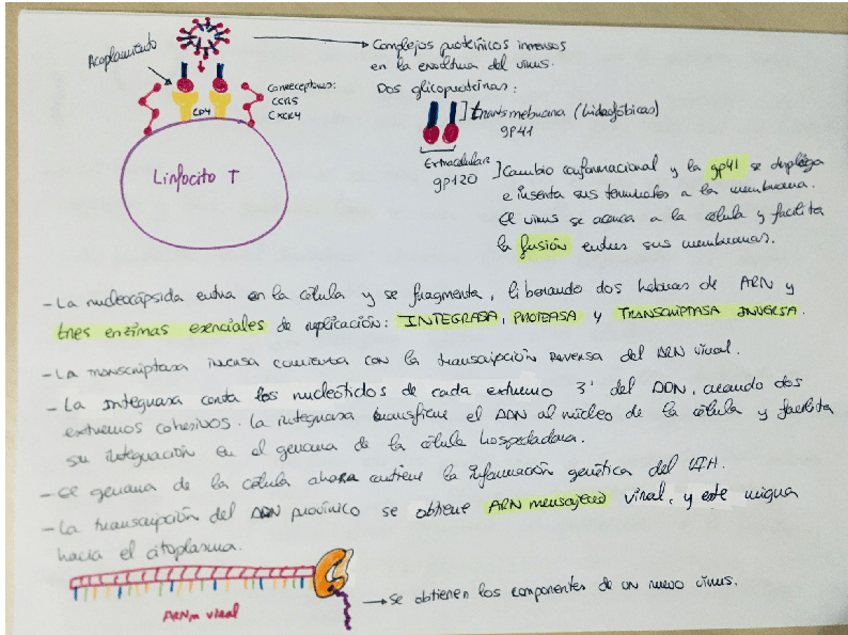 Acoplamiento
Complejos proteínicos inmersos
en la envoltura del virus.
Dos glicoproteínas:
Correceptores:
CCR5
CXCR4
CD4
transmembrana (hidrofóbicas)
gp41
Extracelular
gp120
Linfocito T
Cambio conformacional y la gp41 se despliega
e inserta sus terminales a la membrana.
El virus se acerca a la célula y facilita
la fusión entres sus membranas.
- La nucleocápsida entra en la célula y se fragmenta, liberando dos hebras de ARN y
tres enzimas esenciales de replicación: INTEGRASA, PROTEASA y TRANSCRIPTASA INVERSA.
- La transcriptasa inversa comienza con la transcripción reversa del ARN viral.
- La Integrasa corta los nucleótidos de cada extremo 3' del ADN, creando dos
extremos cohesivos. La integrasa transfiere el ADN al núcleo de la célula y facilita
su integración en el genoma de la célula hospedadora.
- El genoma de la célula ahora contiene la información genética del VIH.
- La transcripción del ADN provírico se obtiene ARN mensajero viral, y este migra
hacia el citoplasma.
ARNm viral
Se obtienen los componentes de un nuevo virus.